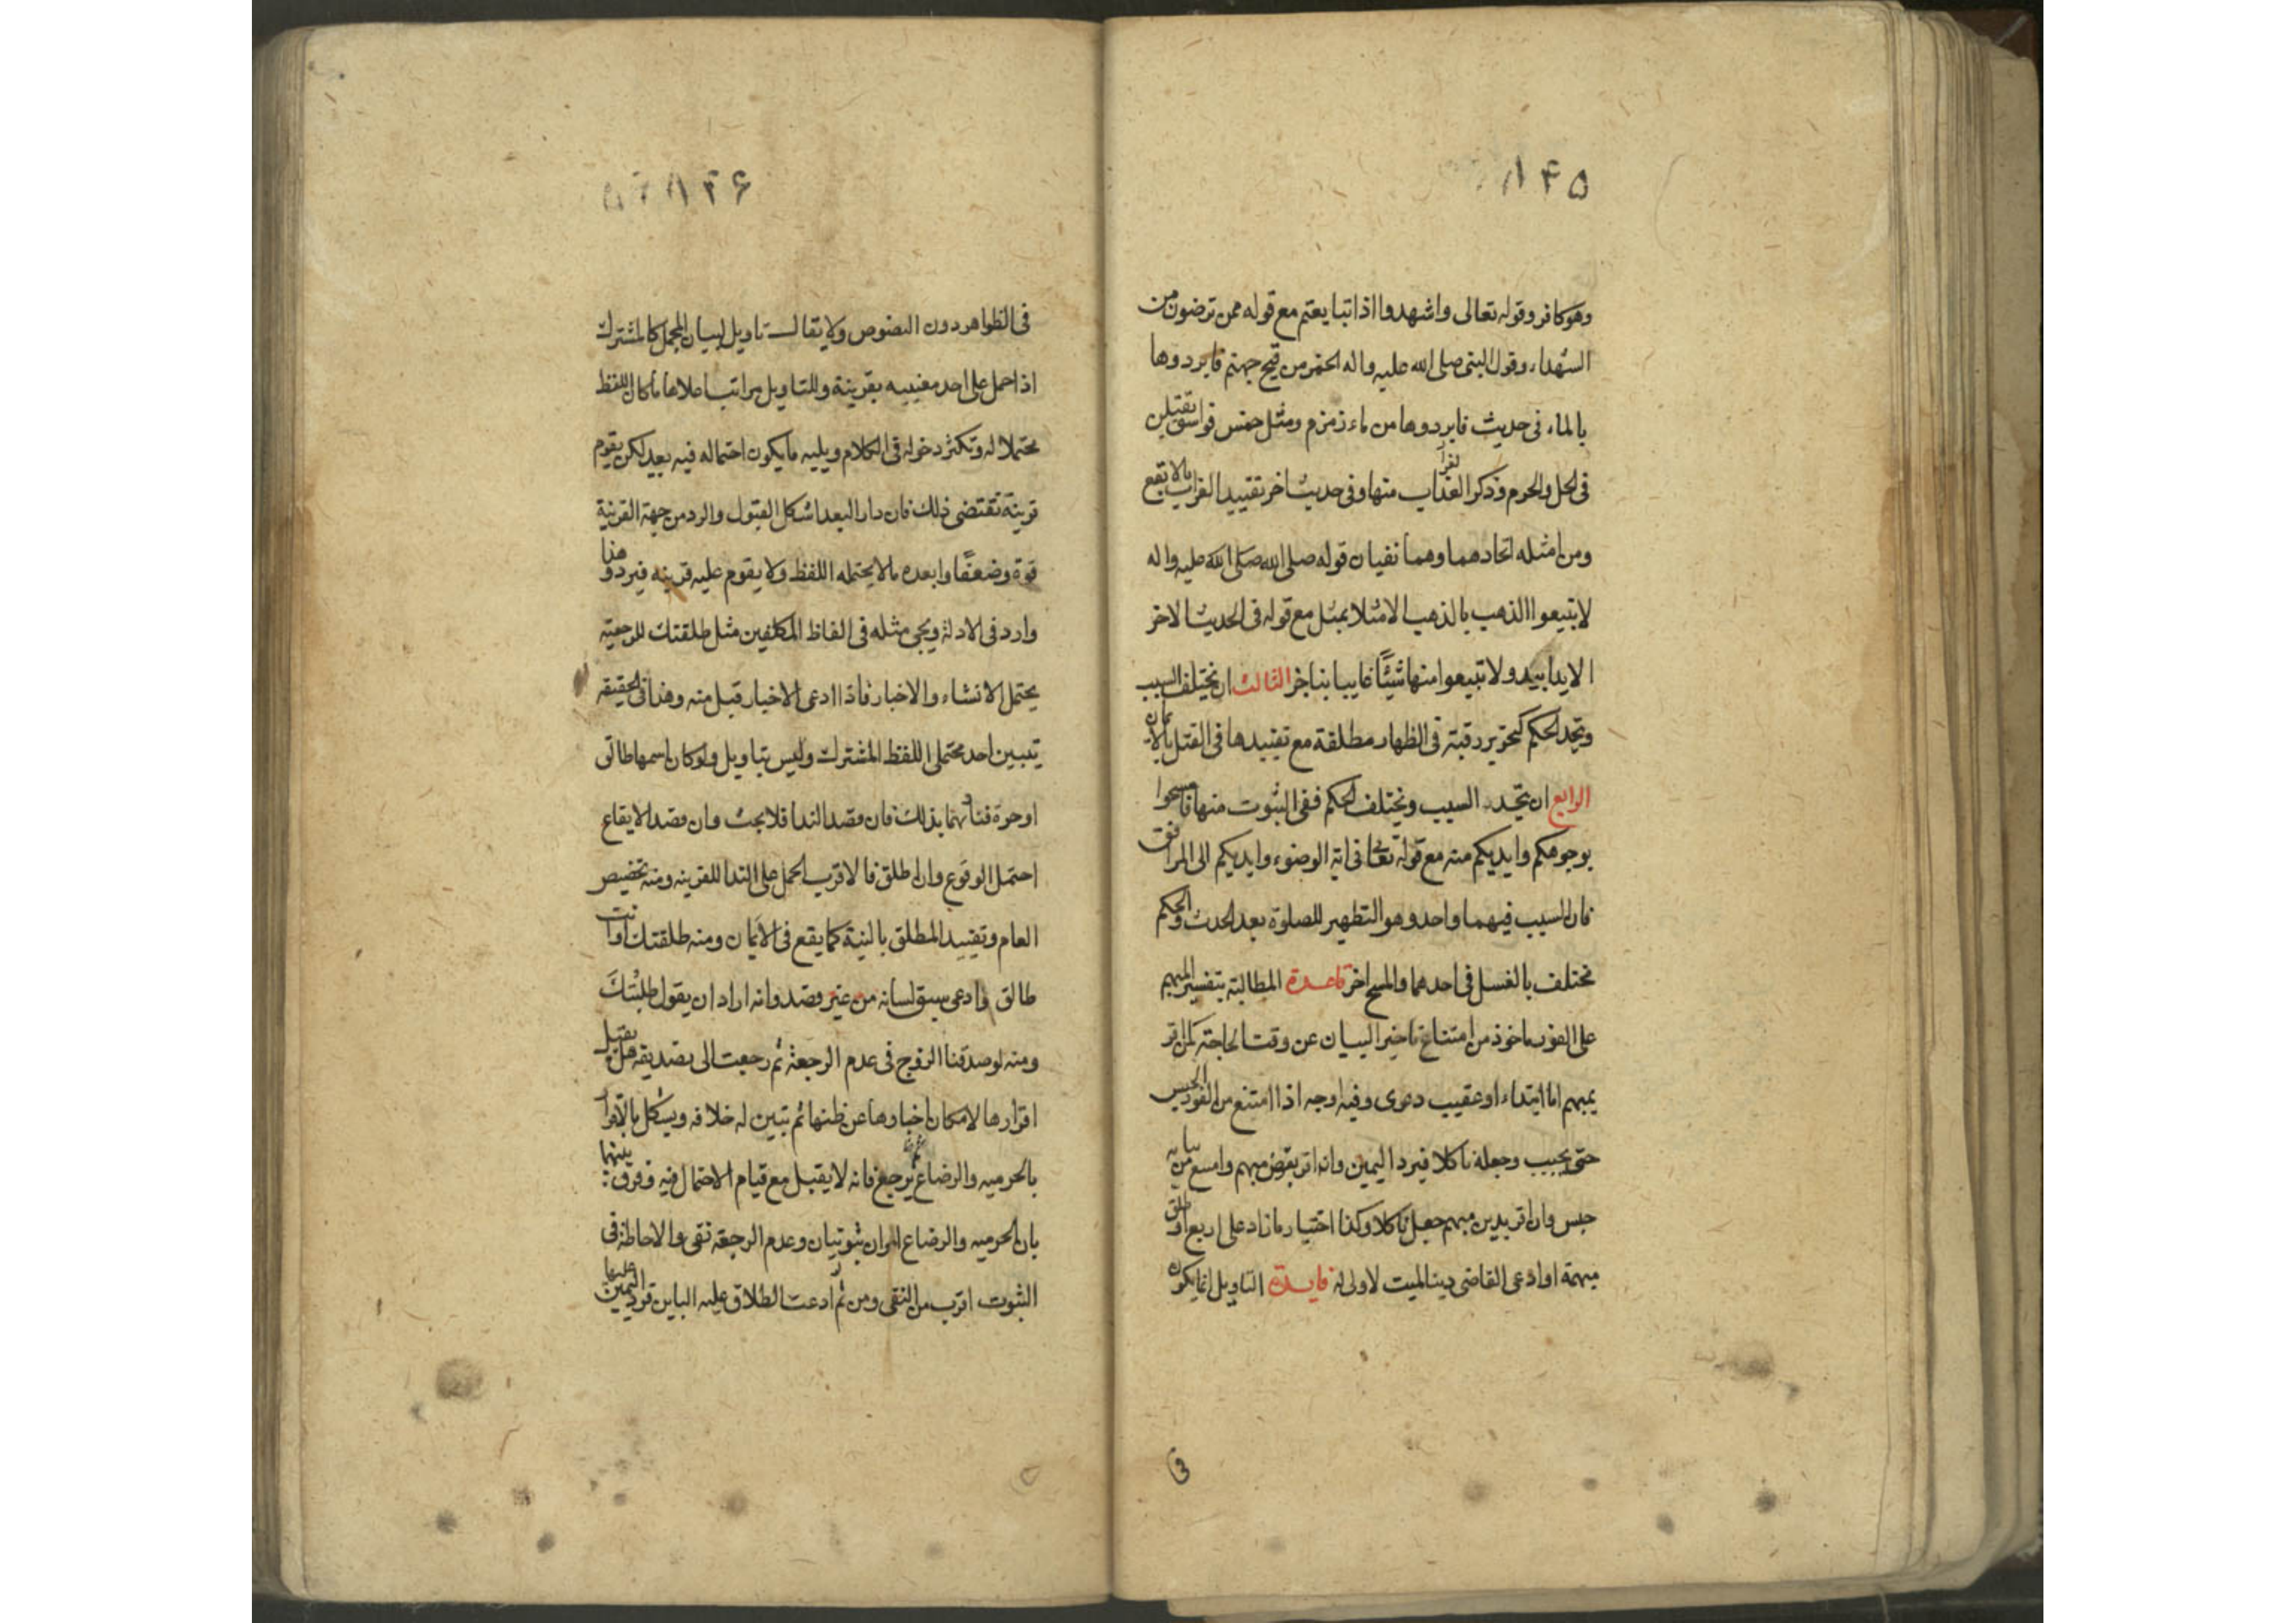 ۱۴۵
وهو كافر وقوله تعالى واشهدوا اذا تبايعتم مع قوله ممن ترضون من
الشهداء وقول النبي صلى الله عليه واله الحمى من فيح جهنم فابردوها
بالماء في حديث فابردوها من ماء زمزم ومثل خمس فواسق يقتلن
في الحل والحرم وذكر الغراب منها وفي حديث اخر تقييد الغراب بالابقع
ومن امثله اتحادهما وهما نفيان قوله صلى الله صلى الله عليه واله
لا تبيعوا الذهب بالذهب الا مثلا بمثل مع قوله في الحديث الاخر
الا يدا بيد ولا تبيعوا منها شيئًا غايبا بناجز الثالث ان يختلف السبب
ويتحد الحكم كتحرير رقبة في الظهار مطلقة مع تقييدها في القتل بالايمان
الرابع ان يتحد السبب ويختلف الحكم ففي الثبوت منها فامسحوا
بوجوهكم وايديكم منه مع قوله تعالى في اية الوضوء وايديكم الى المرافق
فان السبب فيهما واحد وهو التطهير للصلوة بعد الحدث والحكم
مختلف بالغسل في احدهما والمسح اخر قاعدة المطالبة بتفسير المبهم
على الفور ماخوذ من امتناع تاخير البيان عن وقت الحاجة كمن اقر
بمبهم اما ابتداء او عقيب دعوى وفيه اوجه اذا امتنع من الفور الحبس
حتى يجيب وجعله ناكلا فيرد اليمين وانه اقر بغصب مبهم وامتنع من بيانه
حبس وان اقر بدين مبهم جعل ناكلا وكذا اختيار مازاد على اربع او طلق
مبهمة او ادعى القاضي دينا لميت لا ولى له فايدة التاويل انما يكون
في
۱۴۶
في الظواهر دون النصوص ولا يقال تاويل لبيان المجمل كالمشترك
اذا حمل على احد معنييه بقرينة وللتاويل مراتب اعلاها ما كان اللفظ
محتملا له وتكثر دخوله في الكلام ويليه ما يكون احتماله فيه بعيد لكن يقوم
قرينة تقتضي ذلك فان دار البعد اشكل القبول والرد من جهة القرينة
قوة وضعفًا وابعده مالا يحتمله اللفظ ولا يقوم عليه قرينه فيرد وهذا
وارد في الادلة ويجي مثله في الفاظ المكلفين مثل طلقتك للرجعية
يحتمل الانشاء والاخبار فاذا ادعى الاخبار قبل منه وهذا في الحقيقة
تبيين احد محتملى اللفظ المشترك وليس بتاويل ولو كان اسمها طالق
او حرة فناداهما بذلك فان قصد الندا فلا بحث وان قصد الايقاع
احتمل الوقوع وان اطلق فالاقرب الحمل على الندا للقرينه ومنه تخصيص
العام وتقييد المطلق بالنية كما يقع في الايمان ومنه طلقتك او انت
طالق وادعى سبق لسانه من غير قصد وانه اراد ان يقول طلبتك
ومنه لو صدقنا الزوج في عدم الرجعة ثم رجعت الى تصديقه هل يقبل
اقرارها لامكان اخبارها عن ظنها ثم تبين له خلافه ويشكل بالاقرار
بالحرمية والرضاع ثم يرجع فانه لا يقبل مع قيام الاحتمال فيه وفرق بينهما
بان الحرميه والرضاع امران ثبوتيان وعدم الرجعة نفى والاحاطة في
الثبوت اقرب من النفى ومن ثم ادعت الطلاق عليه الباين فرد اليمين عليها